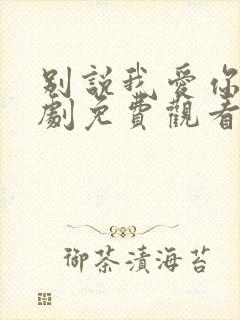 別說我愛你
劇免費觀看
御茶漬海苔